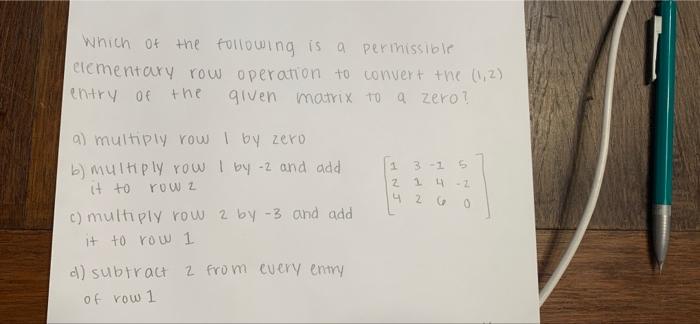 Which of the following is a permissible
elementary row operation to convert the (1,2)
entry of the given matrix to a zero?
a) multiply row 1 by zero
b) multiply row 1 by -2 and add
it to row 2
c) multiply row 2 by -3 and add
it to row 1
d) subtract 2 from every entry
of row 1
1 3 -1 5
2 1 4 -2
4 2 6 0